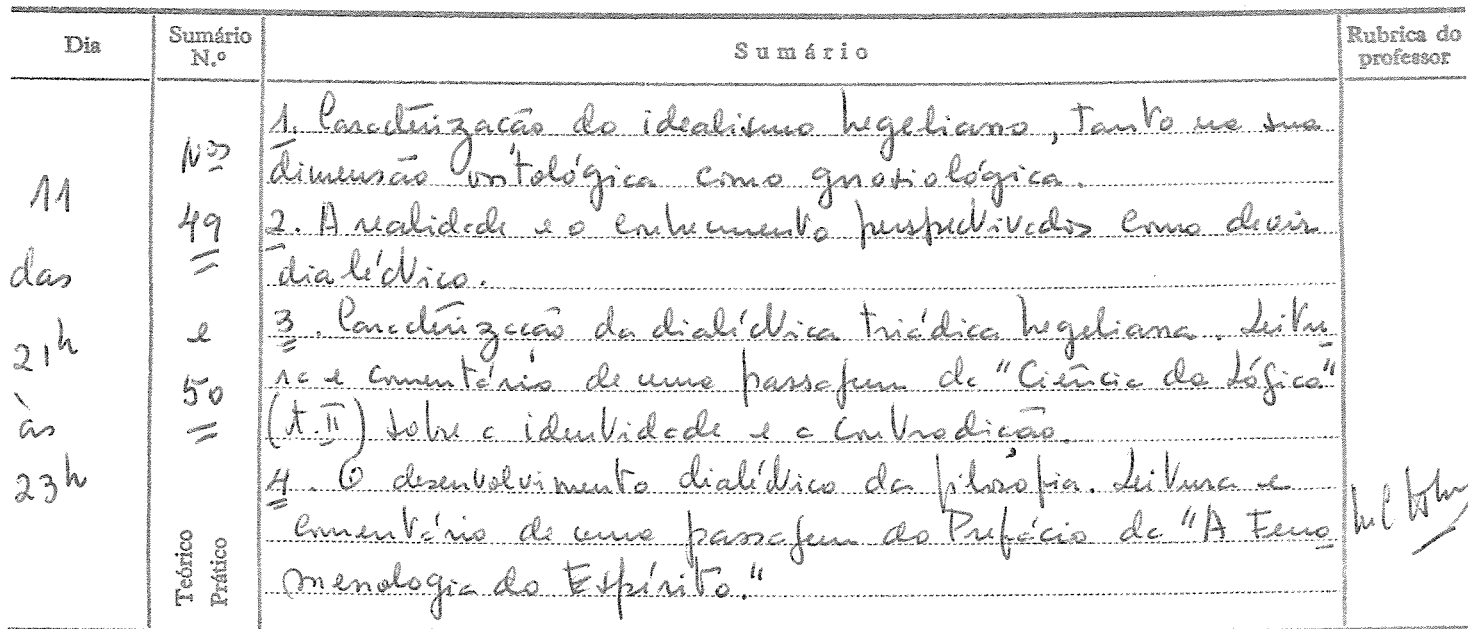 Dia
Sumário N.º
Sumário
Rubrica do professor
11
das
21h
às
23h
Nos
49
e
50
Teórico
Prático
1. Caracterização do idealismo hegeliano, tanto na sua
dimensão ontológica como gnosiológica.
2. A realidade e o conhecimento perspectivados como devir
dialéctico.
3. Caracterização da dialéctica triádica hegeliana. Leitu
ra e comentário de uma passagem da "Ciência da Lógica"
(t. II) sobre a identidade e a contradição.
4. O desenvolvimento dialéctico da filosofia. Leitura e
comentário de uma passagem do Prefácio da "A Feno
menologia do Espírito."